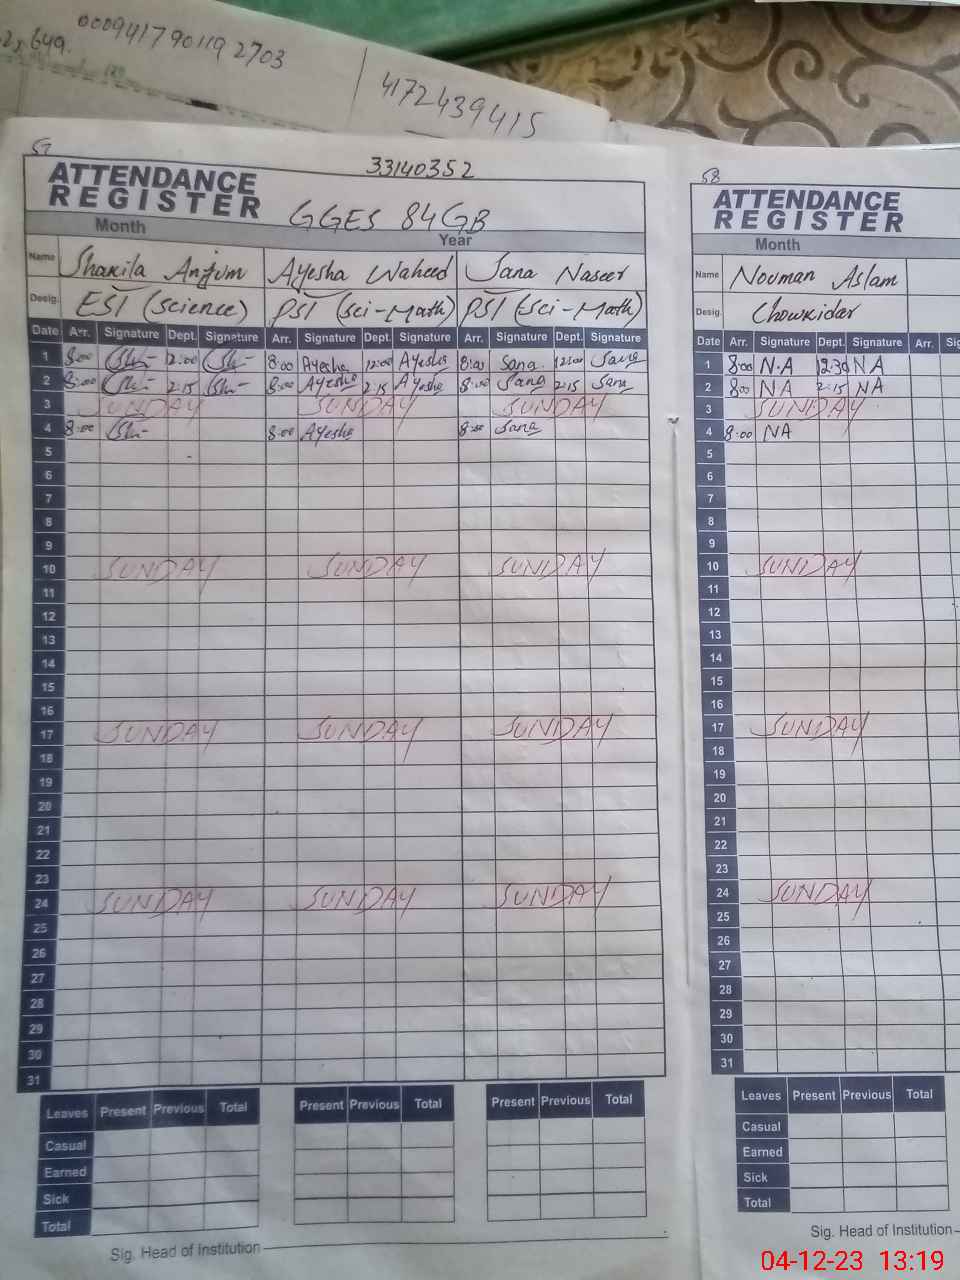 000941790119 2703
2, 649.
4172439415
57
33140352
ATTENDANCE
REGISTER
GGES 84GB
Month
Year
Name Shakila Anjum Ayesha Waheed Sana Naseer
Desig. EST (science) PST (sci-Math) PST (sci-Math)
Date Arr. Signature Dept. Signature Arr. Signature Dept. Signature Arr. Signature Dept. Signature
1 8:00 12:00 8:00 Ayesha 12:00 Ayesha 8:00 Sana 12:00 Sana
2 8:00 2:15 8:00 Ayesha 2:15 Ayesha 8:00 Sana 2:15 Sana
3 SUNDAY SUNDAY SUNDAY
4 8:00 8:00 Ayesha 8:00 Sana
5
6
7
8
9
10 SUNDAY SUNDAY SUNDAY
11
12
13
14
15
16
17 SUNDAY SUNDAY SUNDAY
18
19
20
21
22
23
24 SUNDAY SUNDAY SUNDAY
25
26
27
28
29
30
31
Leaves Present Previous Total Present Previous Total Present Previous Total
Casual
Earned
Sick
Total
Sig. Head of Institution
58
ATTENDANCE
REGISTER
Month
Name Nouman Aslam
Desig. Chowkidar
Date Arr. Signature Dept. Signature Arr.
1 8:00 N.A 12:30 NA
2 8:00 NA 2:15 NA
3 SUNDAY
4 8:00 NA
5
6
7
8
9
10 SUNDAY
11
12
13
14
15
16
17 SUNDAY
18
19
20
21
22
23
24 SUNDAY
25
26
27
28
29
30
31
Leaves Present Previous Total
Casual
Earned
Sick
Total
Sig. Head of Institution
04-12-23 13:19